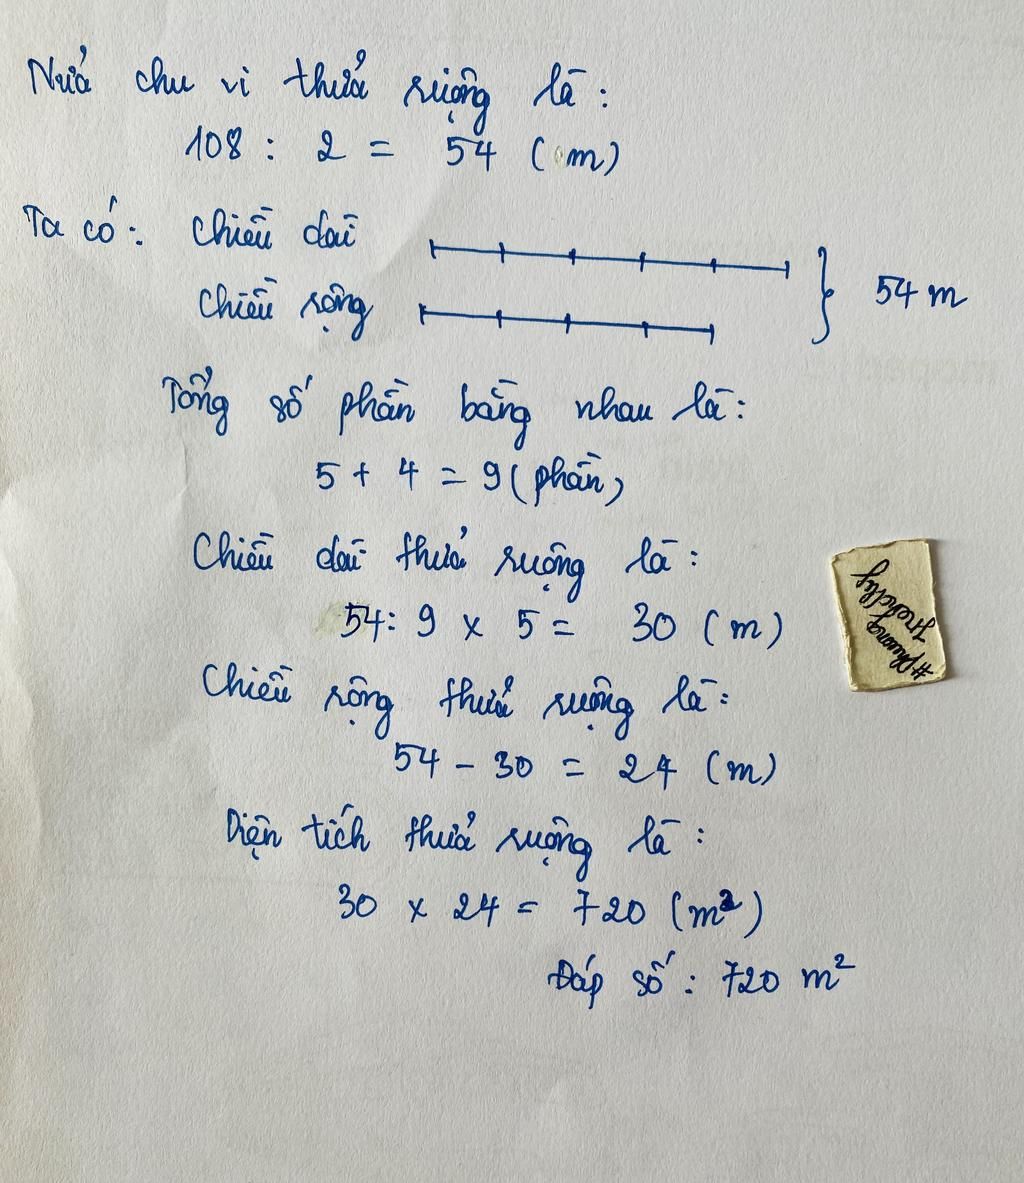 Nửa chu vi thửa ruộng là:
108 : 2 = 54 (m)
Ta có: Chiều dài
Chiều rộng
54 m
Tổng số phần bằng nhau là:
5 + 4 = 9 (phần)
Chiều dài thửa ruộng là:
54: 9 x 5 = 30 (m)
Chiều rộng thửa ruộng là:
54 - 30 = 24 (m)
Diện tích thửa ruộng là:
30 x 24 = 720 (m²)
Đáp số: 720 m²
#phuong